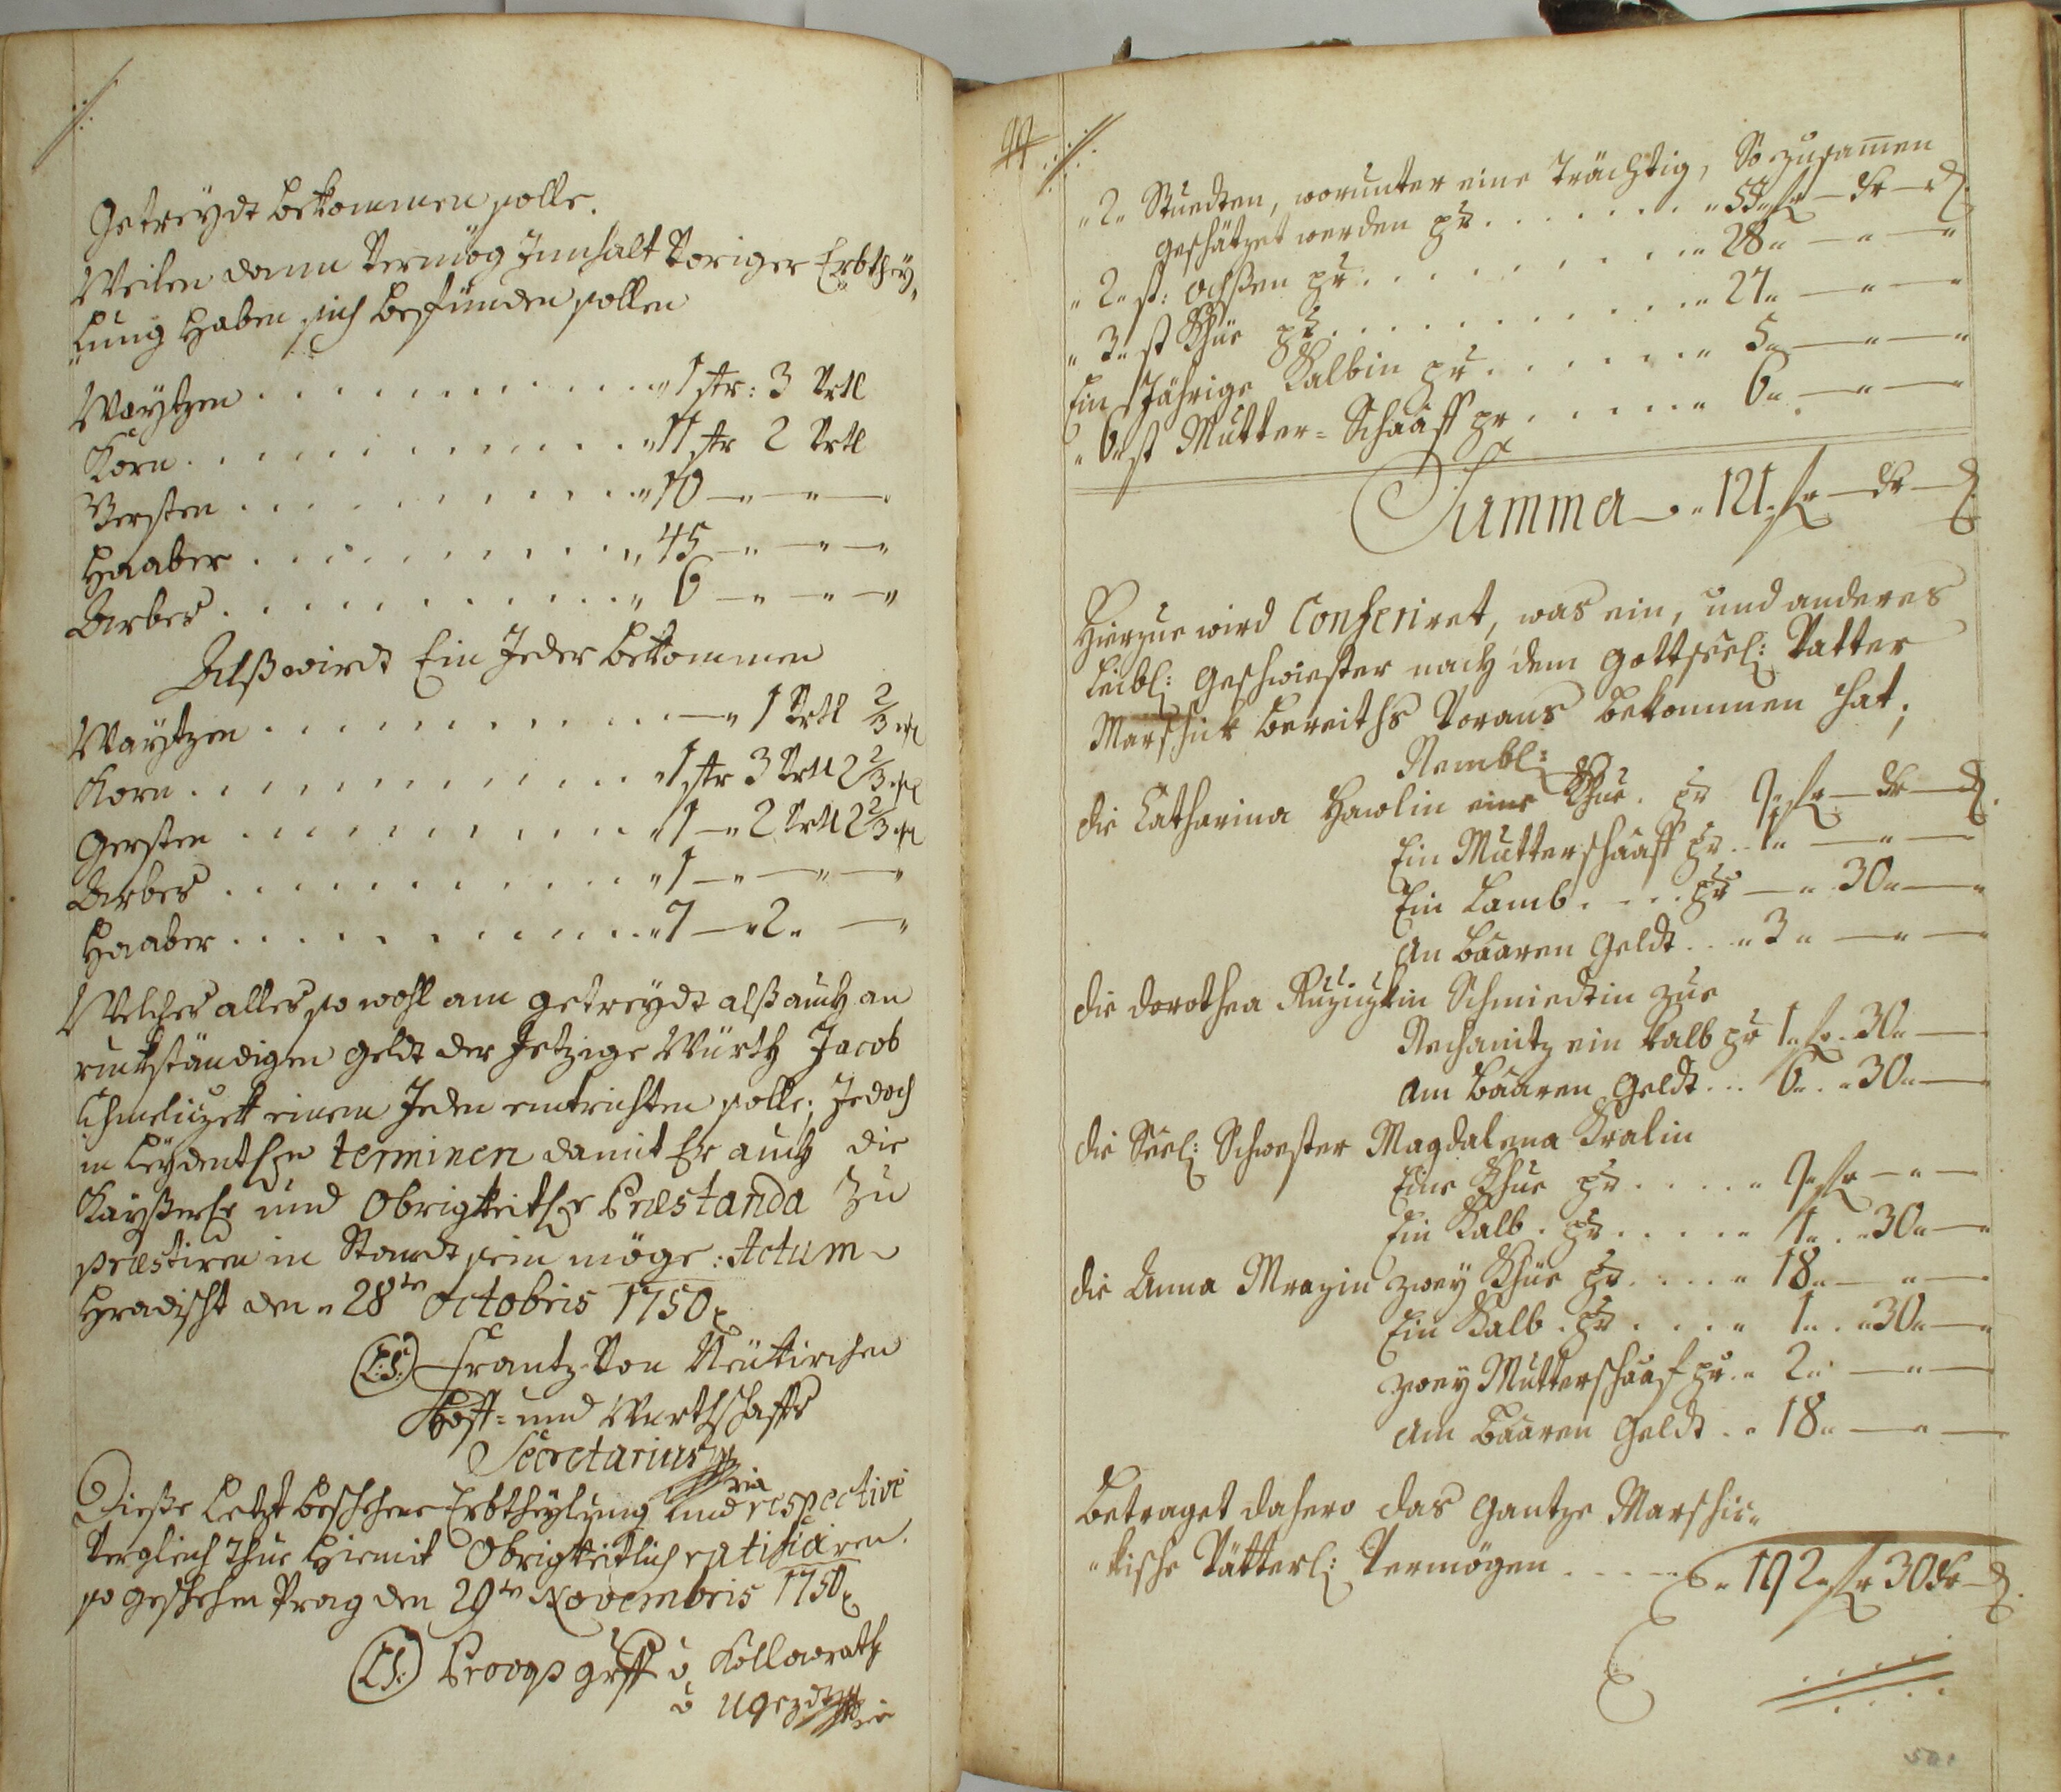 Getreydt bekommen solle.
Weilen dann Vermög Innhalt Voriger Erbthey-
lung haben sich befünden sollen
Waytzen . . . . . . . . . . . „ 1 str: 3 Vrtl
Korn . . . . . . . . . . . . „ 11 str 2 Vrtl
Gersten . . . . . . . . . . . „ 10 — „ — „ —
Haaber . . . . . . . . . . „ 45 — „ — „ —
Arbes . . . . . . . . . . . „ 6 — „ — „ — „
Alß wirdt Ein Jeder bekommen
Waytzen . . . . . . . . . . . — „ 1 Vrtl 2/3
Korn . . . . . . . . . . . „ 1 str 3 Vrtl 2 2/3
Gersten . . . . . . . . . . „ 1 — „ 2 Vrtl 2 2/3
Arbes . . . . . . . . . . . „ 1 — „ — „ — „
Haaber . . . . . . . . . . . „ 7 — „ 2 „ — „
Welches alles so wohl am getreydt alß auch an
ruckständigen geldt der Jetzige Würth Jacob
einem Jeden entrichten solle; Jedoch
in Leydentl. terminen damit Er auch die
Kayßerl. und Obrigkeitl. Præstanda zu
præstiren in Standt sein möge: Actum
Hradischt den „ 28ten Octobris 1750
(L:S:) Frantz Von Neükirchen
Hoff- und Würthschaffts
Secretarius mpria
Dieße Letzt beschehene Erbtheylung und respective
Verglich thue hiemit Obrigkeitlich ratificiren.
so geschehen Prag den 29ten Novembris 1750
(L:S:) Prokop grff v Kollowrath
v Ugezd mpria
99
„ 2 „ Stuedten, worunter eine Trächtig, So zusamen
geschätzet werden pr . . . . . . . „ 55 „ fr — kr — d.
„ 2 „ st: ochßen pr . . . . . . . . . „ 28 „ — „ — „
„ 3 „ st Khüe pr . . . . . . . . . . „ 27 „ — „ — „
Ein 1 Jährige Kalbin pr . . . . . . „ 5 „ — „ — „
„ 6 „ st Mutter-Schaaff pr . . . . . „ 6 „ — „ —
Summa „ 121 „ fr — kr — d.
Hierzue wird Conferiret, was ein, und anderes
Leibl: Geschwiester nach dem gottseel: Vatter
Marschik bereiths Voraus bekommen hat;
Nembl:
die Catharina Hawlin eine Khue . pr 9 „ fr — kr — d.
Ein Mutterschaaff pr . . 1 „ — „ —
Ein Lamb . . . . pr — „ 30 „ — „
An Baaren Geldt . . „ 3 „ — „ — „
die Dorothea Ruzuzkin Schmiedtin zue
Nechanitz ein Kalb pr 1 „ fr . 30 „ —
am Baaren Geldt . . . 6 „ . „ 30 „ —
die Seel: Schwester Magdalena Kralin
Eine Khue pr . . . . „ 9 „ fr — „ —
Ein Kalb . pr . . . . . „ 1 „ . „ 30 „ — „
die Anna Mrazin zwey Khüe pr . . . . „ 18 „ — „ —
Ein Kalb . pr . . . . „ 1 „ . „ 30 „ — „
zwey Mutterschaaf pr . „ 2 „ — „ —
am Baaren Geldt . „ 18 „ — „ —
Betraget dahero das gantze Marschi-
„kische Vätterl: Vermögen . . . . . „ 192 „ fr 30 kr — d.